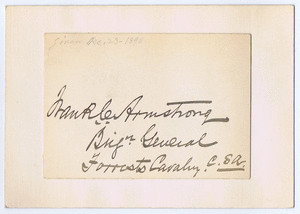 Given Dec. 23 1898
Frank C. Armstrong
Brigr. General
Forrests Cavalry, C.S.A.